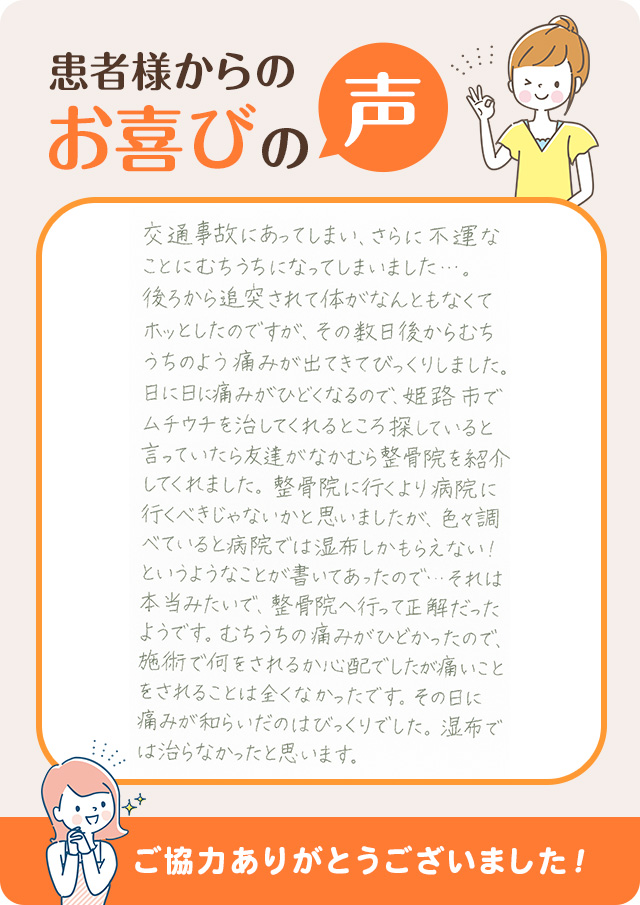 患者様からの
お喜びの声
交通事故にあってしまい、さらに不運な
ことにむちうちになってしまいました…。
後ろから追突されて体がなんともなくて
ホッとしたのですが、その数日後からむち
うちのよう痛みが出てきてびっくりしました。
日に日に痛みがひどくなるので、姫路市で
ムチウチを治してくれるところ探していると
言っていたら友達がなかむら整骨院を紹介
してくれました。整骨院に行くより病院に
行くべきじゃないかと思いましたが、色々調
べていると病院では湿布しかもらえない!
というようなことが書いてあったので…それは
本当みたいで、整骨院へ行って正解だった
ようです。むちうちの痛みがひどかったので、
施術で何をされるか心配でしたが痛いこと
をされることは全くなかったです。その日に
痛みが和らいだのはびっくりでした。湿布で
は治らなかったと思います。
ご協力ありがとうございました!